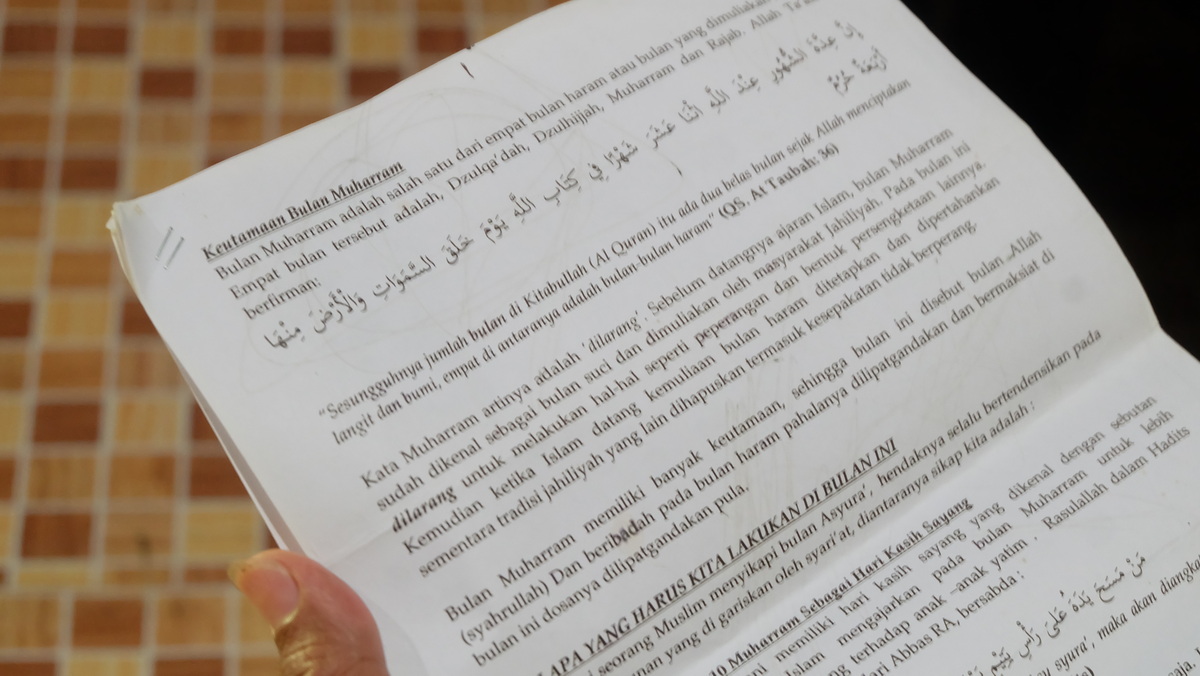 Keutamaan Bulan Muharram
Bulan Muharram adalah salah satu dari empat bulan haram atau bulan yang dimuliakan
Empat bulan tersebut adalah, Dzulqa'dah, Dzulhijjah, Muharram dan Rajab. Allah Ta'
berfirman:
إِنَّ عِدَّةَ الشُّهُورِ عِنْدَ اللَّهِ اثْنَا عَشَرَ شَهْرًا فِي كِتَابِ اللَّهِ يَوْمَ خَلَقَ السَّمَوَاتِ وَالْأَرْضَ مِنْهَا
أَرْبَعَةٌ حُرُمٌ
"Sesungguhnya jumlah bulan di Kitabullah (Al Quran) itu ada dua belas bulan sejak Allah menciptakan
langit dan bumi, empat di antaranya adalah bulan-bulan haram" (QS. At Taubah: 36)
Kata Muharram artinya adalah 'dilarang'. Sebelum datangnya ajaran Islam, bulan Muharram
sudah dikenal sebagai bulan suci dan dimuliakan oleh masyarakat Jahiliyah. Pada bulan ini
dilarang untuk melakukan hal-hal seperti peperangan dan bentuk persengketaan lainnya.
Kemudian ketika Islam datang kemuliaan bulan haram ditetapkan dan dipertahankan
sementara tradisi jahiliyah yang lain dihapuskan termasuk kesepakatan tidak berperang.
Bulan Muharram memiliki banyak keutamaan, sehingga bulan ini disebut bulan Allah
(syahrullah) Dan beribadah pada bulan haram pahalanya dilipatgandakan dan bermaksiat di
bulan ini dosanya dilipatgandakan pula.
APA YANG HARUS KITA LAKUKAN DI BULAN INI
seorang Muslim menyikapi bulan Asyura', hendaknya selalu bertendensikan pada
yang di gariskan oleh syari'at, diantaranya sikap kita adalah :
10 Muharram Sebagai Hari Kasih Sayang
memiliki hari kasih sayang yang dikenal dengan sebutan
mengajarkan pada bulan Muharram untuk lebih
terhadap anak –anak yatim . Rasulallah dalam Hadits
Abbas RA, bersabda :
مَنْ مَسَحَ يَدَهُ عَلَى رَأْسِ يَتِيْمٍ
syura', maka akan diangka